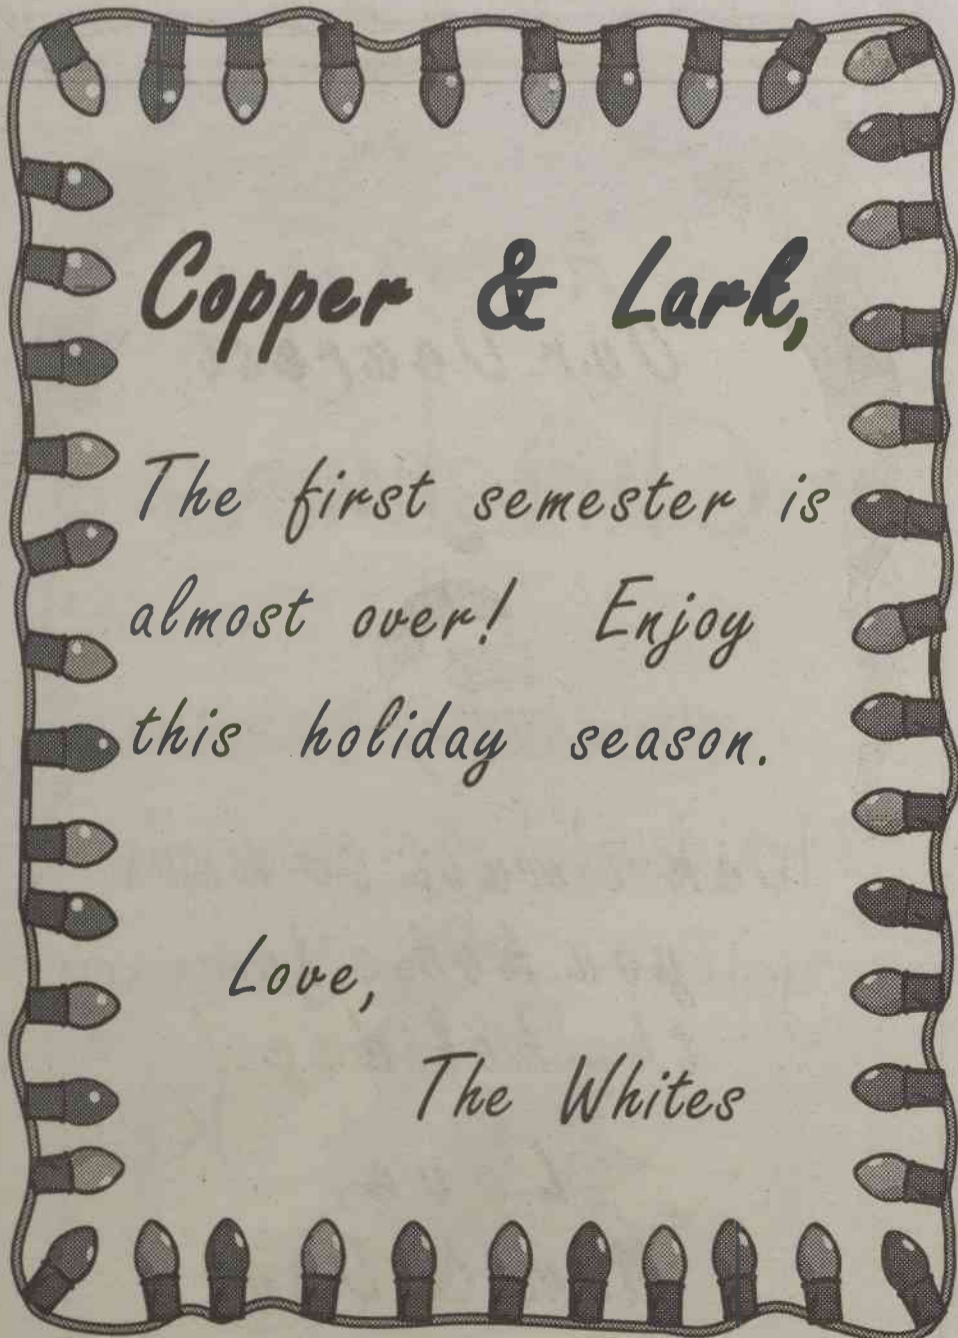 Copper & Lark,
The first semester is
almost over! Enjoy
this holiday season.
Love,
The Whites